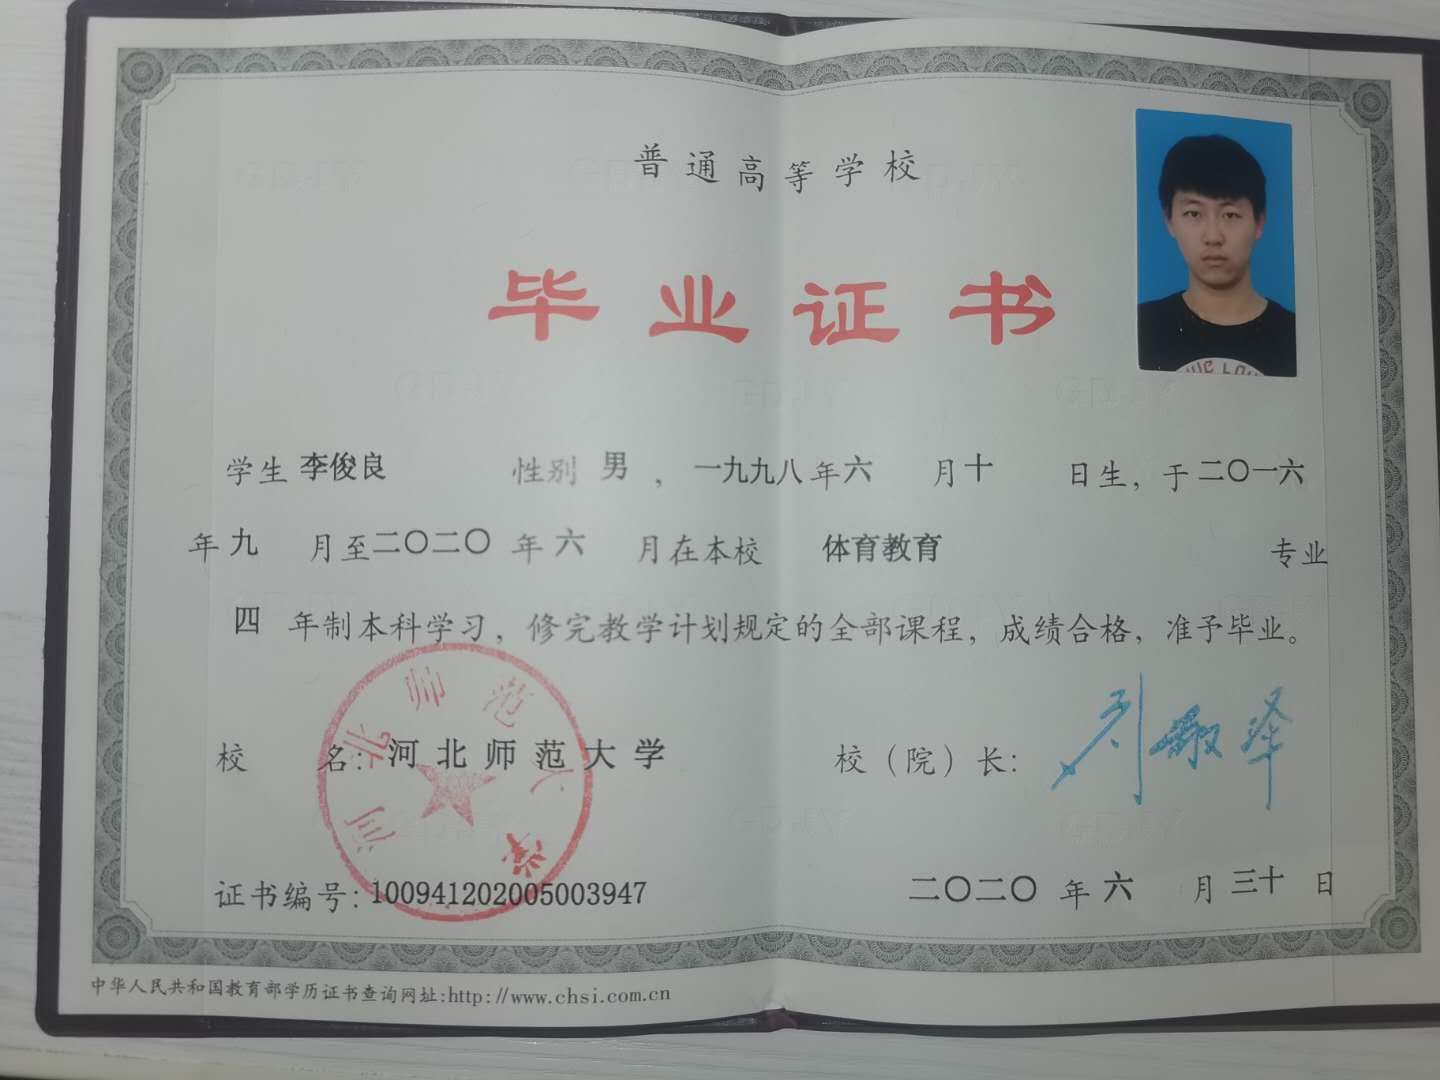 普通高等学校
毕业证书
学生 李俊良 性别 男 ，一九九八年六 月十 日生，于二〇一六
年九 月至二〇二〇 年 六 月在本校 体育教育 专业
四 年制本科学习，修完教学计划规定的全部课程，成绩合格，准予毕业。
校 名：河北师范大学 校（院）长：
河北师范大学
证书编号：100941202005003947 二〇二〇 年 六 月 三十 日
中华人民共和国教育部学历证书查询网址:http://www.chsi.com.cn